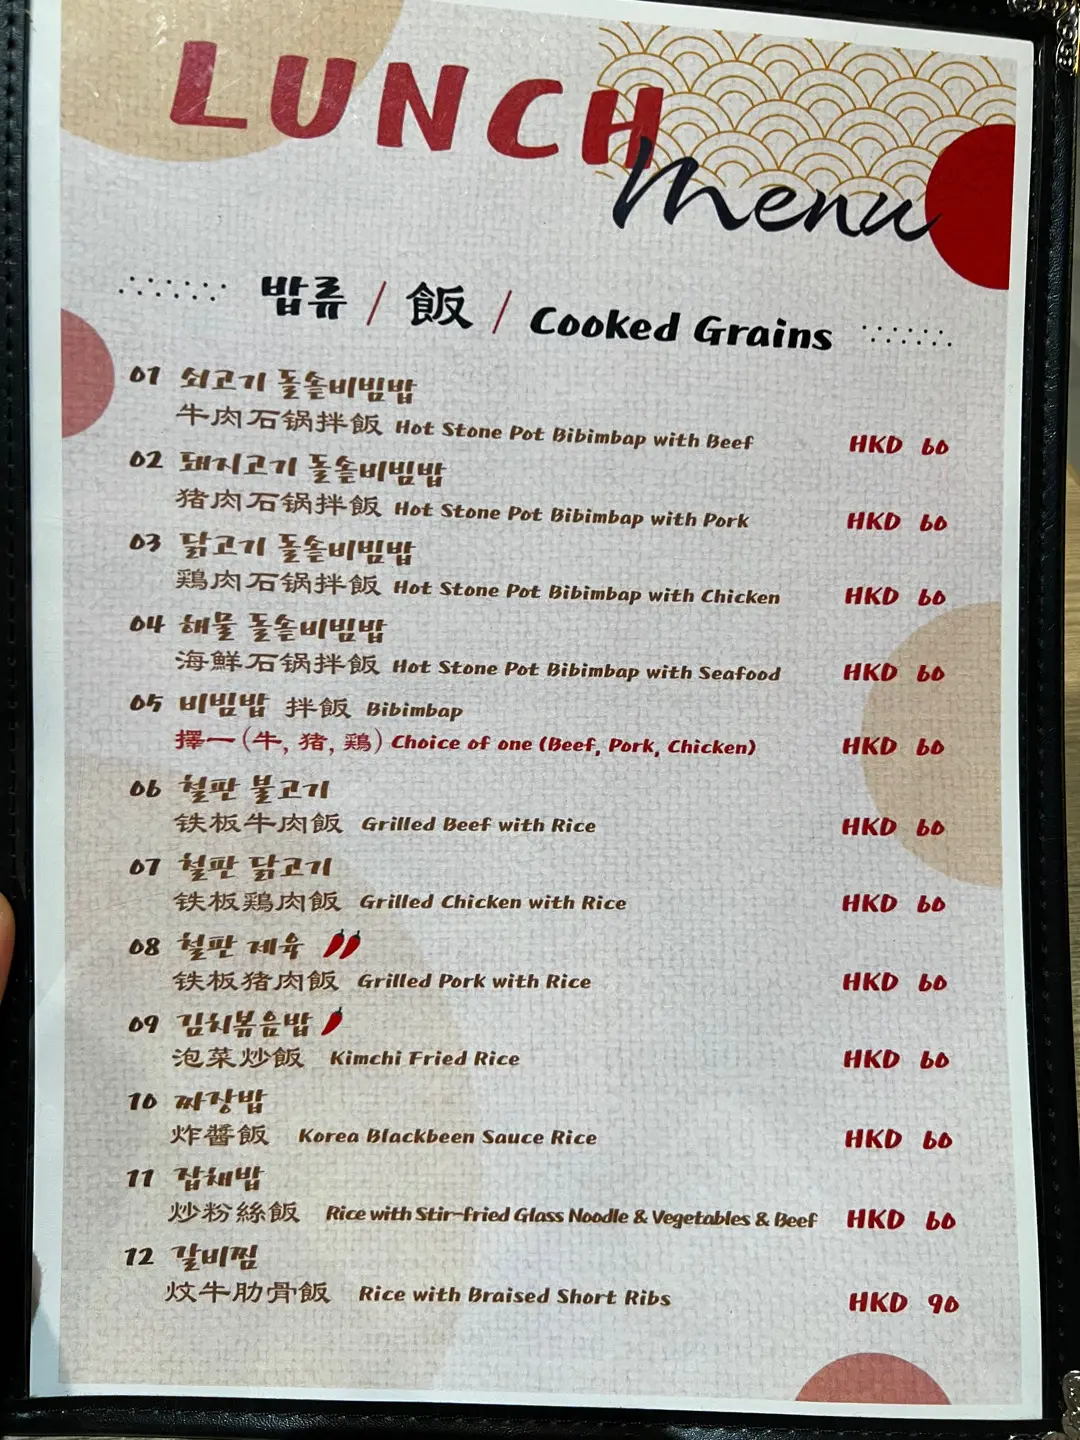 LUNCH
Menu
밥류 / 飯 / Cooked Grains
01 쇠고기 돌솥비빔밥
牛肉石锅拌飯 Hot Stone Pot Bibimbap with Beef HKD 60
02 돼지고기 돌솥비빔밥
猪肉石锅拌飯 Hot Stone Pot Bibimbap with Pork HKD 60
03 닭고기 돌솥비빔밥
鶏肉石锅拌飯 Hot Stone Pot Bibimbap with Chicken HKD 60
04 해물 돌솥비빔밥
海鮮石锅拌飯 Hot Stone Pot Bibimbap with Seafood HKD 60
05 비빔밥 拌飯 Bibimbap
擇一(牛, 猪, 鶏) Choice of one (Beef, Pork, Chicken) HKD 60
06 철판 불고기
铁板牛肉飯 Grilled Beef with Rice HKD 60
07 철판 닭고기
铁板鶏肉飯 Grilled Chicken with Rice HKD 60
08 철판 제육
铁板猪肉飯 Grilled Pork with Rice HKD 60
09 김치볶음밥
泡菜炒飯 Kimchi Fried Rice HKD 60
10 짜장밥
炸醬飯 Korea Blackbeen Sauce Rice HKD 60
11 잡채밥
炒粉絲飯 Rice with Stir-fried Glass Noodle & Vegetables & Beef HKD 60
12 갈비찜
炆牛肋骨飯 Rice with Braised Short Ribs HKD 90